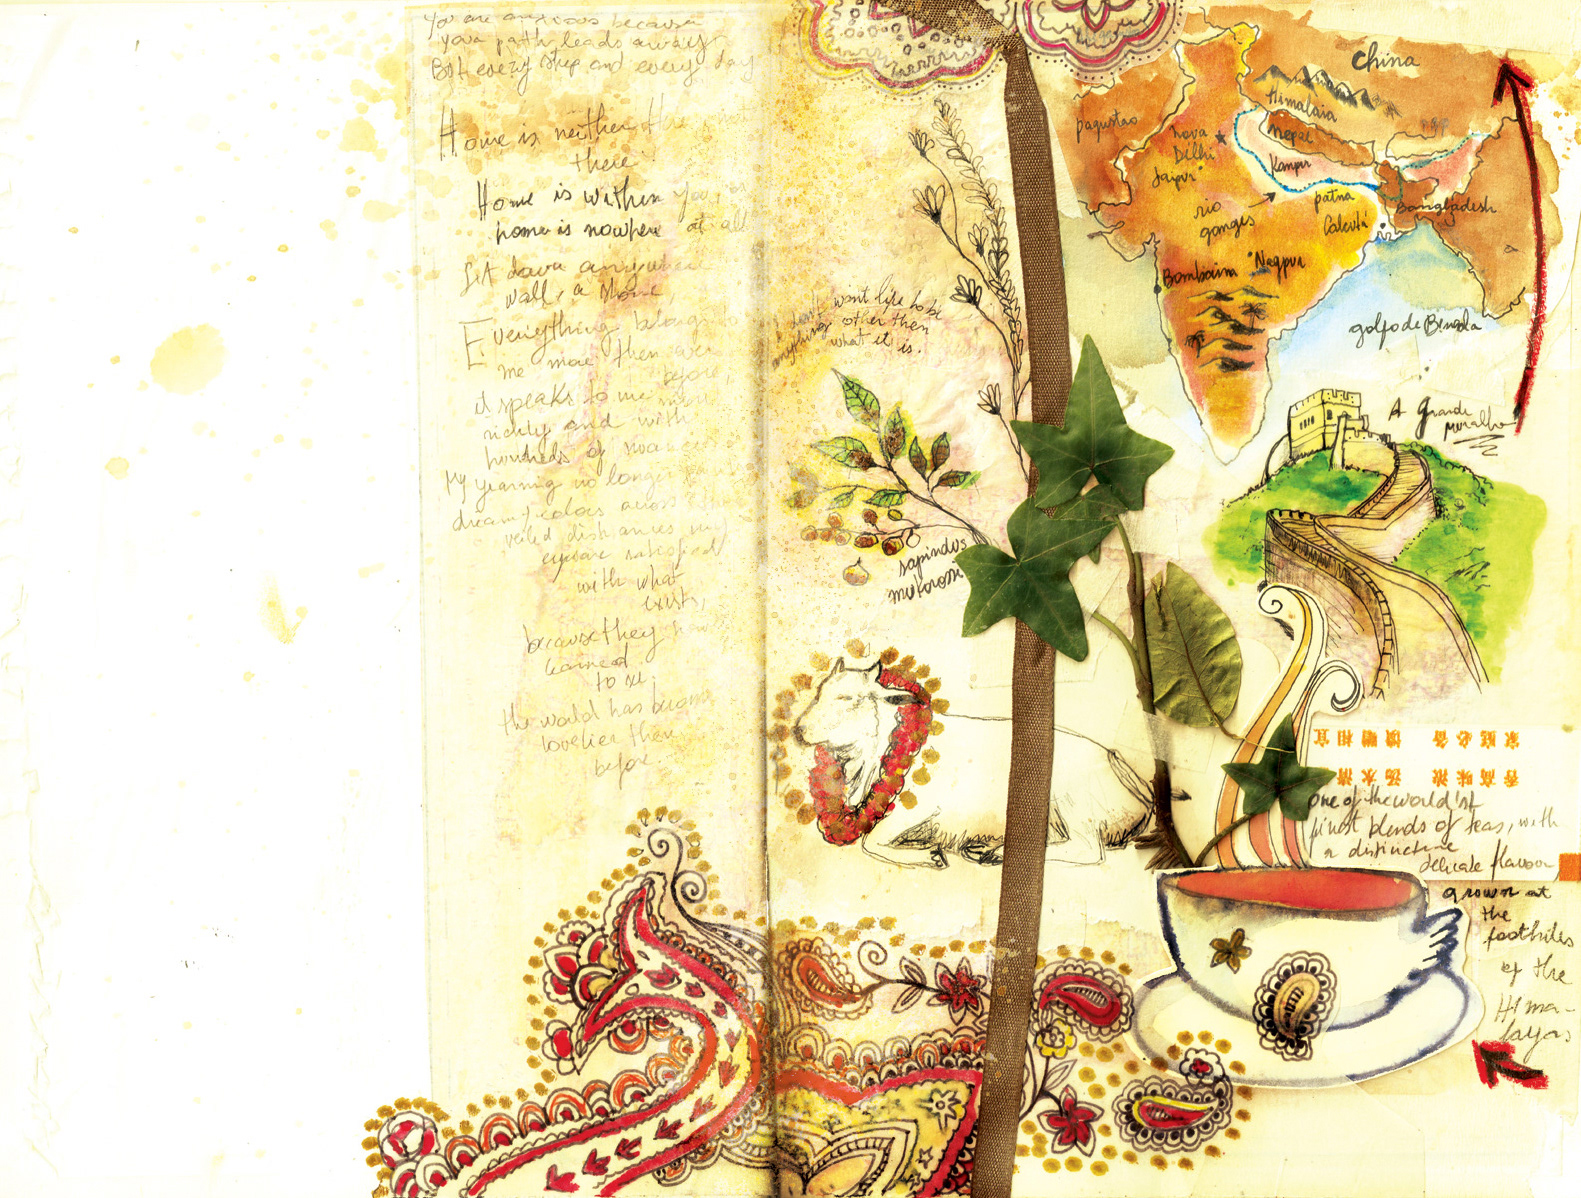 You are anxious because
your path leads away
But every step and every day
Home is neither
there
Home is within you, or
home is nowhere at all
Sit down anywhere
wall, a stone,
Everything belongs to
me more then ever
before,
it speaks to me more
richly and with
hundreds of
My yearning no longer
dream of colors across the
veiled distances my
eyes are satisfied
with what
exists,
because they have
learned
to see.
the world has become
lovelier then
before.
I don't want life to be
anything other then
what it is.
sapindus
mukorossi
China
Himalaia
paquistao
nova
Delhi
nepal
Jaipur
Kanpur
rio
ganges
patna
Calcutá
Bangladesh
Bombaim
Nagpur
golfo de Bengala
A grande
muralha
家庭必备 馈赠相宜
香高味浓 汤水清
one of the world'st
finest blends of teas, with
a distinctive
delicate flavour,
grown at
the
foothiles
of the
Hima-
layas